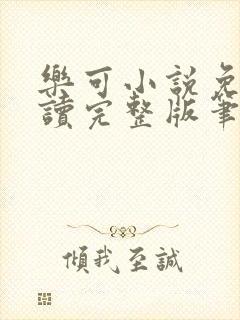 樂可小說免
讀完整版筆
傾我至誠